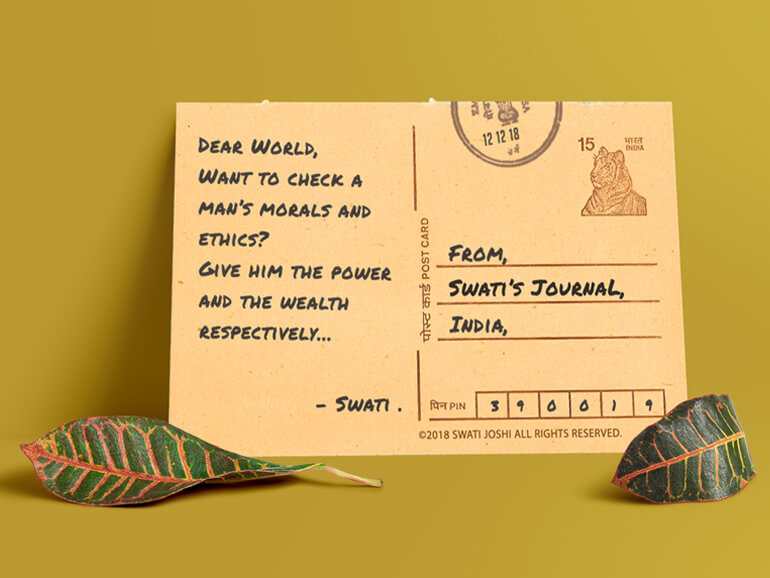 DEAR WORLD,
WANT TO CHECK A
MAN'S MORALS AND
ETHICS?
GIVE HIM THE POWER
AND THE WEALTH
RESPECTIVELY...
- SWATI .
पोस्ट कार्ड POST CARD
12 12 18
15 भारत
INDIA
FROM,
SWATI'S JOURNAL,
INDIA,
पिन PIN 3 9 0 0 1 9
©2018 SWATI JOSHI ALL RIGHTS RESERVED.